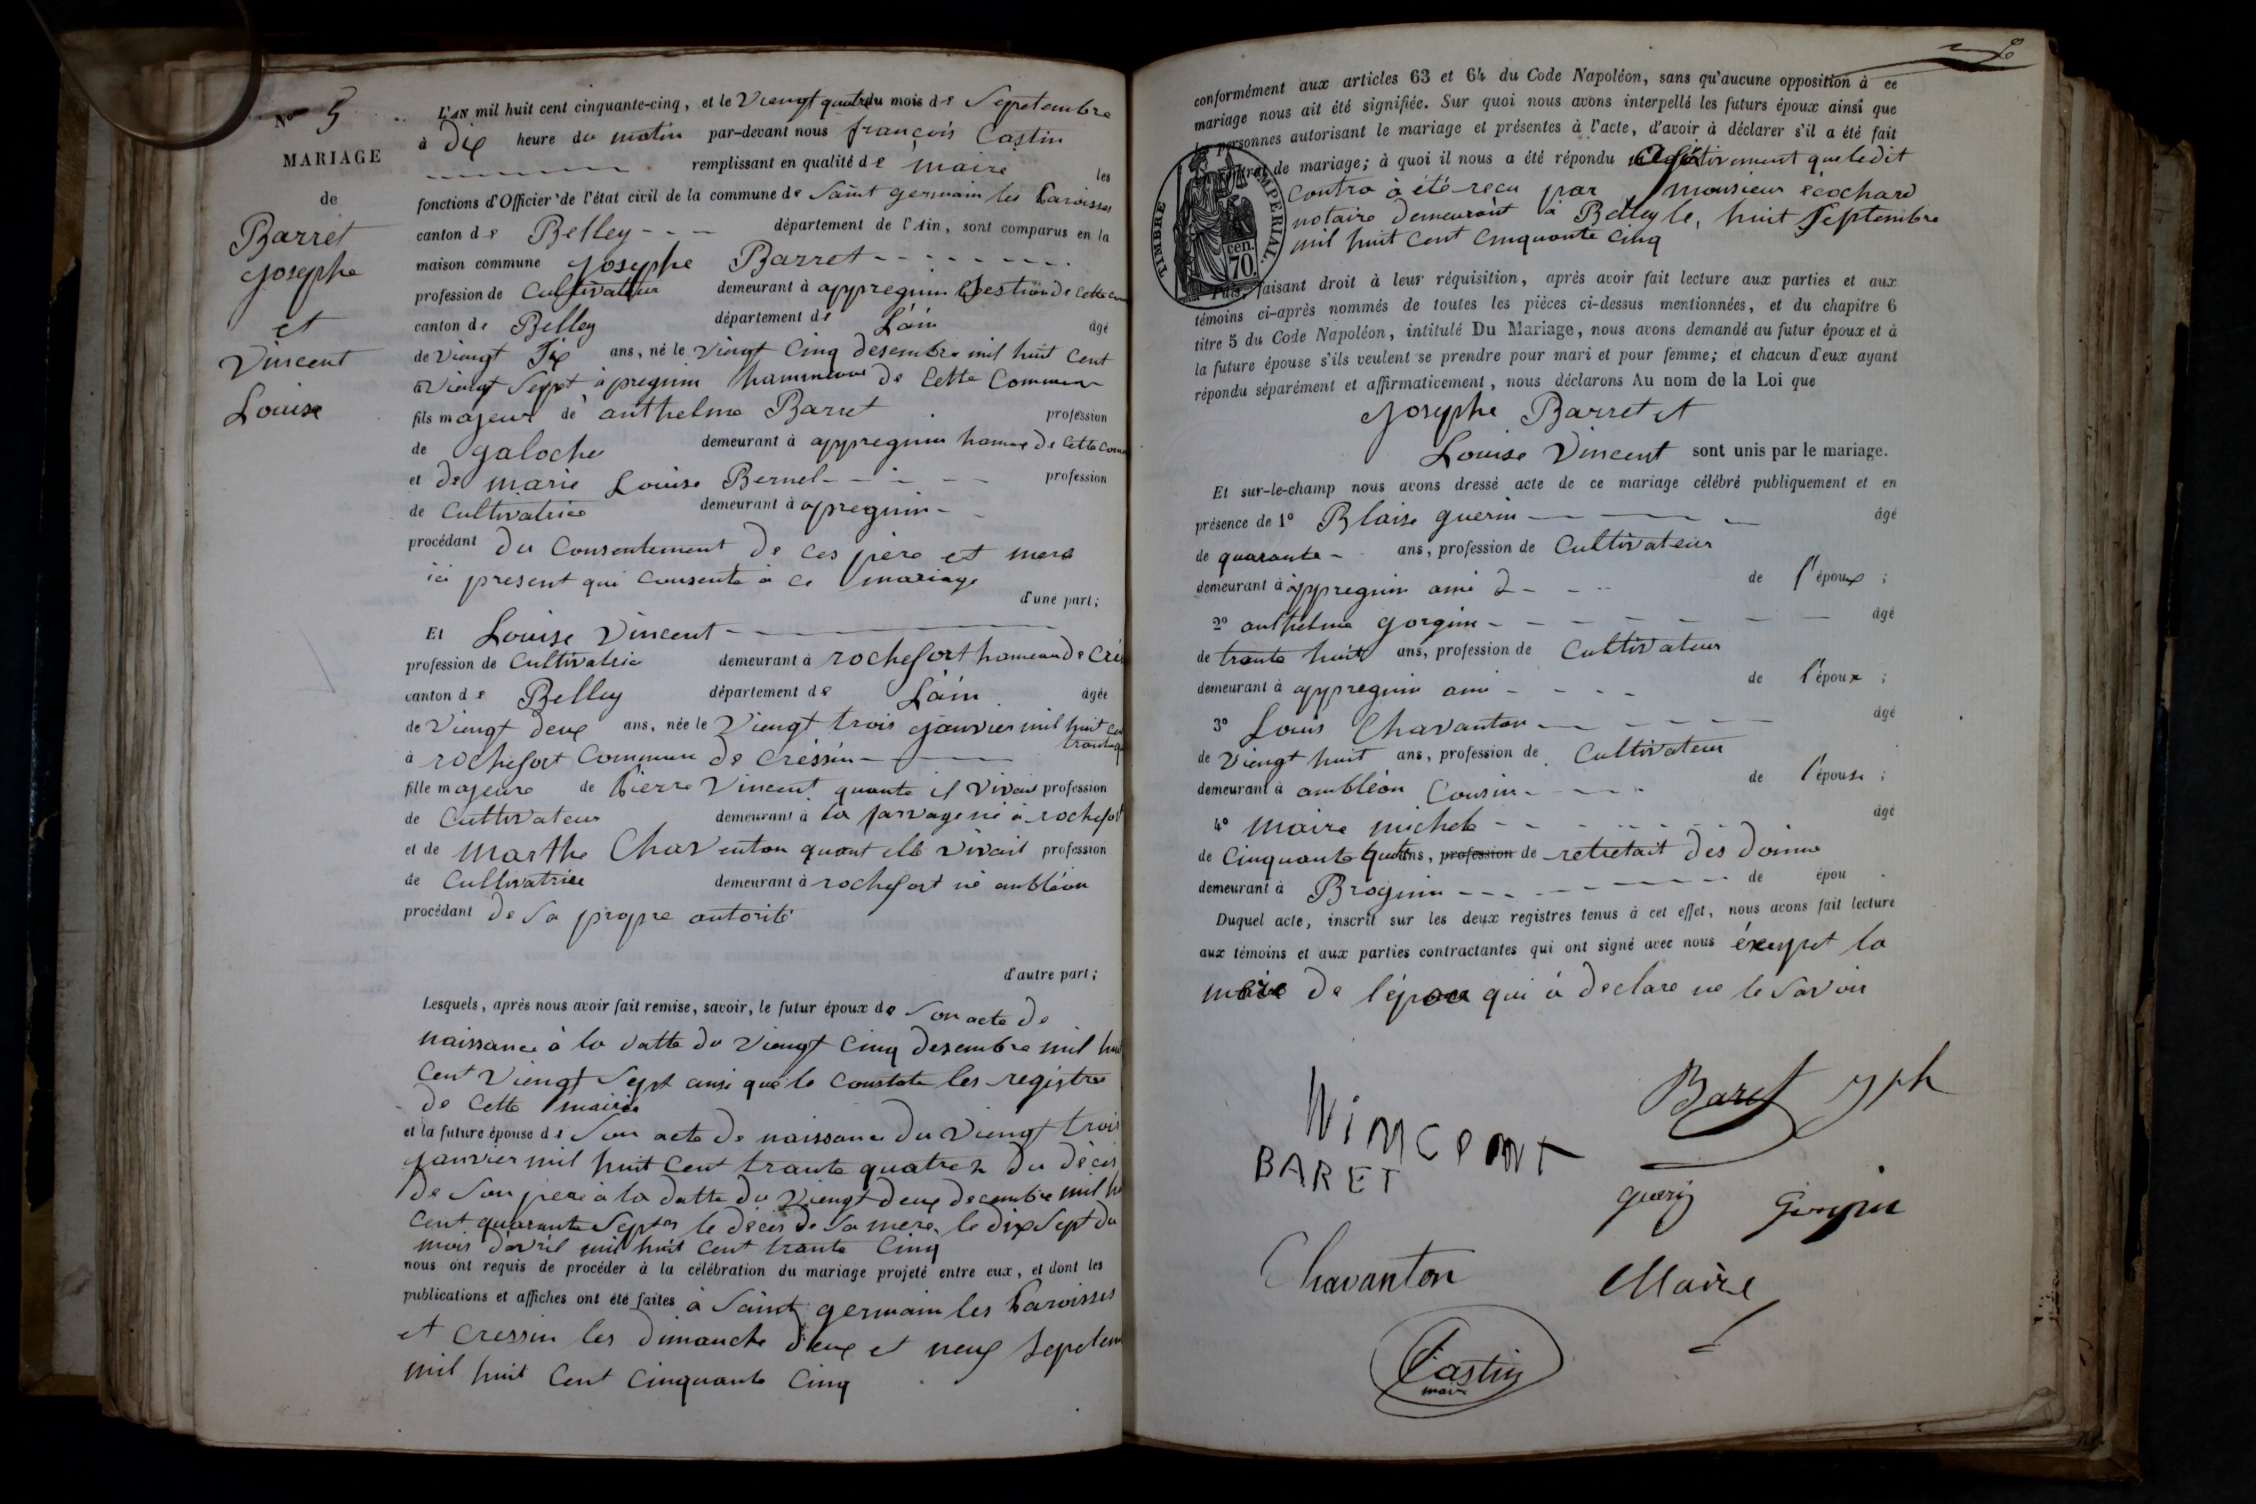 N° 5
MARIAGE
de
Barret
Josephe
et
Vincent
Louise
L'AN mil huit cent cinquante-cinq, et le Viengt quatre du mois de Septembre
à Dix heure du matin par-devant nous françois Castin
remplissant en qualité de maire les
fonctions d'Officier de l'état civil de la commune de Saint germain les Paroisses
canton de Belley département de l'Ain, sont comparus en la
maison commune Josephe Barret
profession de Cultivateur demeurant à appregnin de cette
canton de Belley département de L'ain âgé
de Viengt Six ans, né le Viengt Cinq desembre mil huit Cent
Viengt Sept à pregnin hammeau de Cette Commune
fils majeur de anthelme Barret profession
de galoche demeurant à appregnin hamau de Cette
et de marie Louise Bernel profession
de Cultivatrice demeurant à apregnin
procédant du Consentement de ces père et mere
ici present qui Consente à ce mariage
d'une part;
Et Louise Vincent
profession de Cultivatric demeurant à rochefort hameau de
canton de Belley département de L'ain âgée
de Viengt deux ans, née le Viengt trois janvier mil huit
à rochefort Commune de Cressin
fille majeure de Pierre Vincent quante il Vivai profession
de Cultivateur demeurant à rochefort
et de Marthe Chaventon quant elle Vivait profession
de Cultivatrice demeurant à rochefort né ambléon
procédant de Sa propre autorité
d'autre part;
Lesquels, après nous avoir fait remise, savoir, le futur époux de Son acte de
naissance à la datte du Viengt Cinq desembre mil
Cent Viengt Sept ainsi que le Constate les registre
de Cette mairie
et la future épouse de Son acte de naissance du Viengt trois
janvier mil huit Cent trante quatre du déces
de Son pere à la datte du Viengt deux decembre mil
Cent quarante Sept le déces de Sa mere le dix Sept du
mois d'avril mil huit Cent trante Cinq
nous ont requis de procéder à la célébration du mariage projeté entre eux, et dont les
publications et affiches ont été faites à Saint germain les Paroisses
et Cressin les dimanche deux et neuf
mil huit Cent Cinquante Cinq
conformément aux articles 63 et 64 du Code Napoléon, sans qu'aucune opposition à ce
mariage nous ait été signifiée. Sur quoi nous avons interpellé les futurs époux ainsi que
personnes autorisant le mariage et présentes à l'acte, d'avoir à déclarer s'il a été fait
de mariage; à quoi il nous a été répondu que ledit
Contra à été recu par Monsieur écochard
notaire demeurant à Belley le, huit Septembre
mil huit Cent Cinquante Cinq
TIMBRE IMPÉRIAL.
cen.
70.
faisant droit à leur réquisition, après avoir fait lecture aux parties et aux
témoins ci-après nommés de toutes les pièces ci-dessus mentionnées, et du chapitre 6
titre 5 du Code Napoléon, intitulé Du Mariage, nous avons demandé au futur époux et à
la future épouse s'ils veulent se prendre pour mari et pour femme; et chacun d'eux ayant
répondu séparément et affirmativement, nous déclarons Au nom de la Loi que
Josephe Barret et
Louise Vincent sont unis par le mariage.
Et sur-le-champ nous avons dressé acte de ce mariage célébré publiquement et en
présence de 1° Blaise guerin âgé
de quarante ans, profession de Cultivateur
demeurant à appregnin ami de l'époux ;
2° anthelme gorgin âgé
de trante huit ans, profession de Cultivateur
demeurant à appregnin ami de l'époux ;
3° Louis Chavanton âgé
de Viengt huit ans, profession de Cultivateur
demeurant à ambléon Cousin de l'épouse ;
4° Maire michel âgé
de Cinquante ans, profession de retretait des
demeurant à Brognin de épou
Duquel acte, inscrit sur les deux registres tenus à cet effet, nous avons fait lecture
aux témoins et aux parties contractantes qui ont signé avec nous éxcepet la
mère de l'épou qui à declare ne le Savoir
Baret jph
WiMCeNT
BARET
guerin Gorgin
Chavanton Maire
Castin
maire